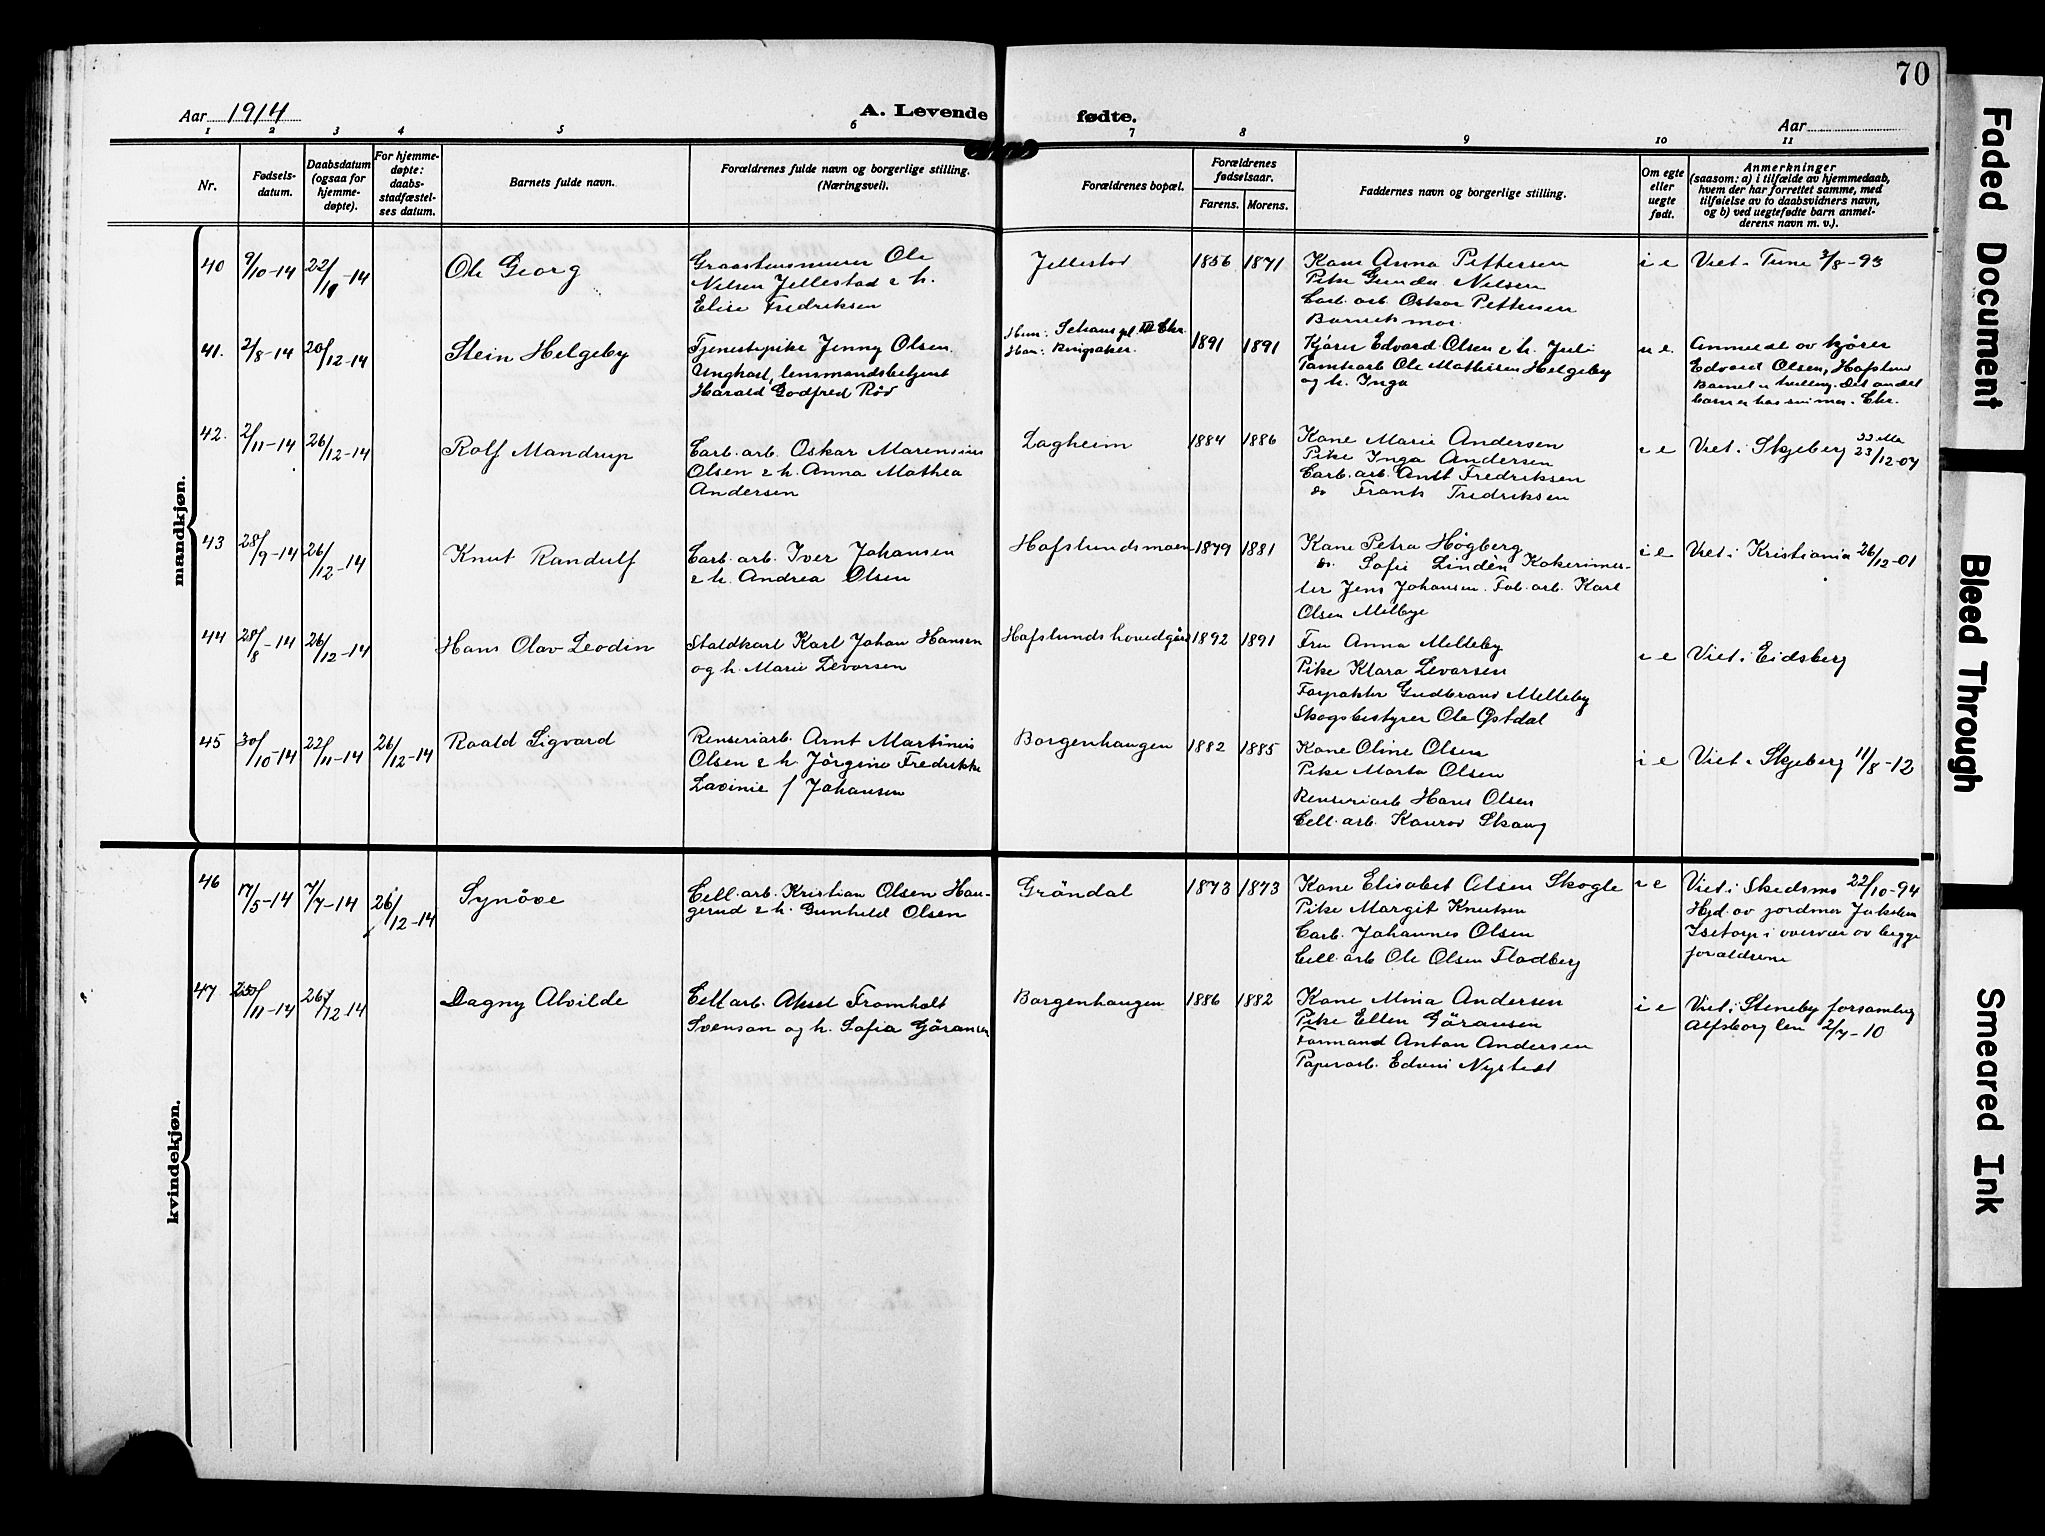 70
Aar 1914
A. Levende fødte.
Aar
1 2 3 4 5 6 7 8 9 10 11
Nr.
Fødsels-
datum.
Daabsdatum
(ogsaa for
hjemme-
døpte).
For hjemme-
døpte:
daabs-
stadfæstel-
ses datum.
Barnets fulde navn.
Forældrenes fulde navn og borgerlige stilling.
(Næringsvei).
Forældrenes bopæl.
Forældrenes
fødselsaar.
Farens. Morens.
Faddernes navn og borgerlige stilling.
Om egte
eller
uegte
født.
Anmerkninger
(saasom: a) i tilfælde av hjemmedaab,
hvem der har forrettet samme, med
tilføielse av to daabsvidners navn,
og b) ved uegtefødte barn anmel-
derens navn m. v.).
mandkjøn.
40 9/10-14 22/11-14 Ole Georg
Graastensmurer Ole
Nilsen Jellestad & h.
Elise Fredriksen
Jellestad 1856 1871
Kone Anna Pettersen
Pike Gunda Nilsen
Carb. arb. Oskar Pettersen
Barnets mor.
i e Viet i Tune 7/8-93
41. 2/8-14 20/12-14 Stein Helgeby
Tjenestepike Jenny Olsen.
Ungkarl, lensmandsbetjent
Harald Godfred Röd
Hun: Schaus pl. Chr.
Han: Ringsaker.
1891 1891
Kjörer Edvard Olsen & h. Juli
Tomtearb Ole Mathisen Helgeby
og h. Inga
u e. Anmeldt av kjörer
Edvard Olsen, Hafslund
Barnet er tvilling. Det andet
barn er hos sin mor. Chr.
42. 2/11-14 26/12-14 Rolf Mandrup
Carb. arb. Oskar Marensius
Olsen & h. Anna Mathea
Andersen
Lagheim 1884 1886
Kone Marie Andersen
Pike Inga Andersen
Carb. arb. Antt Fredriksen
do Frants Fredriksen
i e Viet i Skjeberg 23/12-07
43 28/9-14 26/12-14 Knut Randulf
Carb. arb. Iver Johansen
& h. Andrea Olsen
Hafslundsmoen 1879 1881
Kone Petra Högberg
do. Sofie Lindèn Kokerimes-
ter Jens Johansen. Fab. arb. Karl
Olsen Melbye
i e Viet i Kristiania 26/12-01
44 28/8-14 26/12-14 Hans Olav Leodin
Staldkarl Karl Johan Hansen
og h. Marie Levorsen
Hafslunds hovedgård 1892 1891
Fru Anna Melleby
Pike Klara Levorsen
Forpakter Gudbrand Melleby
Skogsbestyrer Ole Østdal
i e Viet i Eidsberg
45 30/10-14 22/11-14 26/12-14 Roald Sigvard
Renseriarb. Arnt Martinius
Olsen & h. Jörgine Fredrikke
Lavinie f Johansen
Borgenhaugen 1882 1885
Kone Oline Olsen
Pike Marta Olsen
Renseriarb Hans Olsen
Cell. arb. Konrad Skaug
i e Viet i Skjeberg 11/8-12
kvindekjøn.
46 17/5-14 7/7-14 26/12-14 Synöve
Cell. arb. Kristian Olsen Hau-
gerud & h. Gunhild Olsen
Gröndal 1873 1873
Kone Elisabet Olsen Skogle
Pike Margit Knutsen
Carb. Johannes Olsen
Cell. arb Ole Olsen Fladberg
i e Viet i Skedsmo 22/10-94
Hjd. av jordmor
Isetorp i overvær av begge
forældrene
47 11-14 26/12-14 Dagny Alvilde
Cell arb. Aksel Fromholt
Svenson og h. Sofia Göransen
Borgenhaugen 1886 1882
Kone Mina Andersen
Pike Ellen Göransen
Formand Anton Andersen
Papirarb. Edvin Nystedt
i e Viet i Steneby forsamling
Alfsborg len 2/7-10
Faded Document
Bleed Through
Smeared Ink